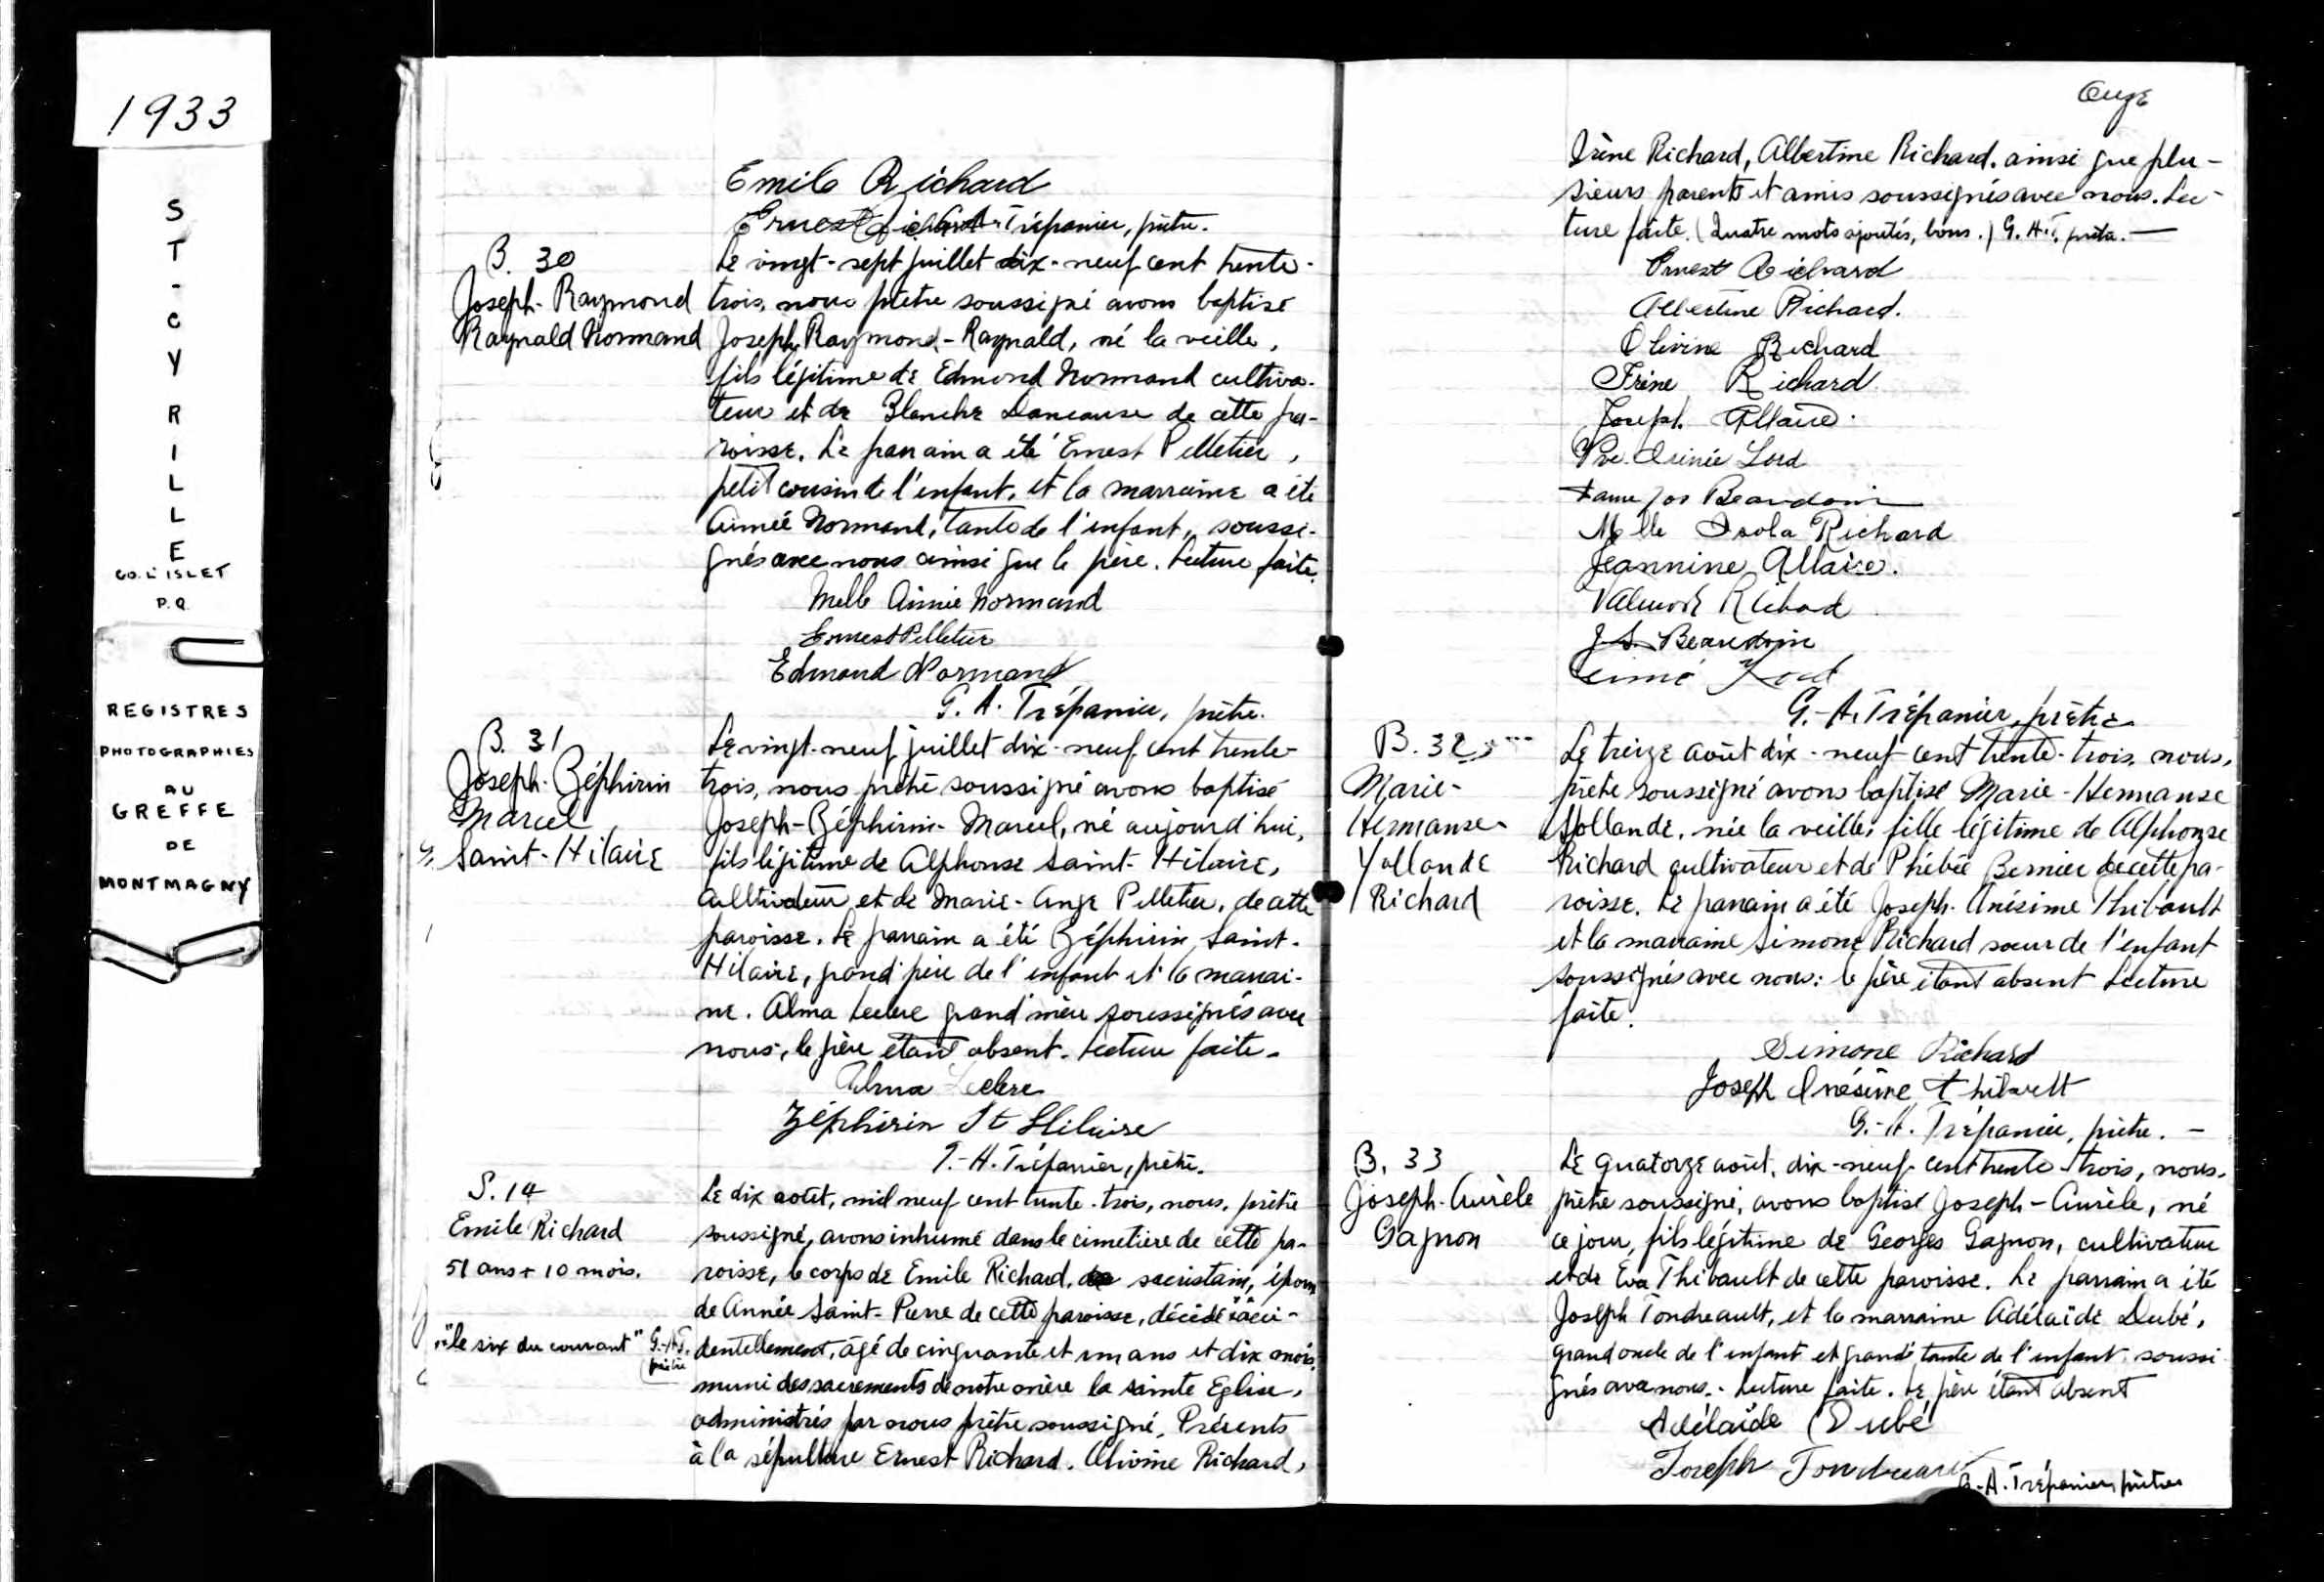 1933
ST-CYRILLE
CO. L'ISLET
P.Q.
REGISTRES
PHOTOGRAPHIES
AU
GREFFE
DE
MONTMAGNY
Emile Richard
Ernest Richard G.-A. Trépanier, prêtre.
B. 30
Joseph-Raymond
Raynald Normand
Le vingt-sept juillet dix-neuf cent trente-
trois, nous prêtre soussigné avons baptisé
Joseph Raymond-Raynald, né la veille,
fils légitime de Edmond Normand cultiva-
teur et de Blanche Dancause de cette pa-
roisse. Le parrain a été Ernest Pelletier,
petit cousin de l'enfant, et la marraine a été
Aimée Normand, tante de l'enfant, soussi-
gnés avec nous ainsi que le père. Lecture faite.
Melle Aimée Normand
Ernest Pelletier
Edmond Normand
G. A. Trépanier, prêtre.
B. 31
Joseph-Zéphirin
Marcel
Saint-Hilaire
Le vingt-neuf juillet dix-neuf cent trente-
trois, nous prêtre soussigné avons baptisé
Joseph-Zéphirin-Marcel, né aujourd'hui,
fils légitime de Alphonse Saint-Hilaire,
cultivateur et de Marie-Ange Pelletier, de cette
paroisse. Le parrain a été Zéphirin Saint-
Hilaire, grand'père de l'enfant et la marrai-
ne. Alma Leclerc grand'mère soussignés avec
nous, le père étant absent. Lecture faite.
Alma Leclerc
Zéphirin St Hilaire
G.-A. Trépanier, prêtre.
S. 14
Emile Richard
51 ans + 10 mois.
"le six du courant" G.-A.T. prêtre
Le dix août, mil neuf cent trente-trois, nous, prêtre
soussigné, avons inhumé dans le cimetière de cette pa-
roisse, le corps de Emile Richard, sacristain, époux
de Année Saint-Pierre de cette paroisse, décédé acci-
dentellement, âgé de cinquante et un ans et dix mois,
muni des sacrements de notre mère la sainte Eglise,
administrés par nous prêtre soussigné. Présents
à la sépulture Ernest Richard. Olivine Richard,
Onze
Irène Richard, Albertine Richard. ainsi que plu-
sieurs parents et amis soussignés avec nous. Lec-
ture faite. (Quatre mots ajoutés, bons.) G. A. T. prêtre.
Ernest Richard
Albertine Richard.
Olivine Richard
Irène Richard
Joseph Allaire.
Vve Irénée Lord
Dame Jos Beaudoin
Melle Isola Richard
Jeannine Allaire.
Valmore Richard
J. S. Beaudoin
Aimé Lord
G.-A. Trépanier, prêtre
B. 32
Marie-
Hermanse-
Yollande
Richard
Le treize août dix-neuf cent trente-trois, nous,
prêtre soussigné avons baptisé Marie-Hermanse
Yollande, née la veille, fille légitime de Alphonse
Richard cultivateur et de Phébée Bernier de cette pa-
roisse. Le parrain a été Joseph-Onésime Thibault
et la marraine Simone Richard sœur de l'enfant
soussignés avec nous: le père étant absent Lecture
faite.
Simone Richard
Joseph Onésime Thibault
G.-A. Trépanier, prêtre.
B. 33
Joseph-Aurèle
Gagnon
Le quatorze août, dix-neuf cent trente-trois, nous,
prêtre soussigné, avons baptisé Joseph-Aurèle, né
ce jour, fils légitime de Georges Gagnon, cultivateur
et de Eva Thibault de cette paroisse. Le parrain a été
Joseph Tondreault, et la marraine Adélaïde Dubé,
grand oncle de l'enfant et grand'tante de l'enfant soussi-
gnés avec nous. Lecture faite. Le père étant absent
Adélaïde Dubé
Joseph Tondreau
G.-A. Trépanier, prêtre